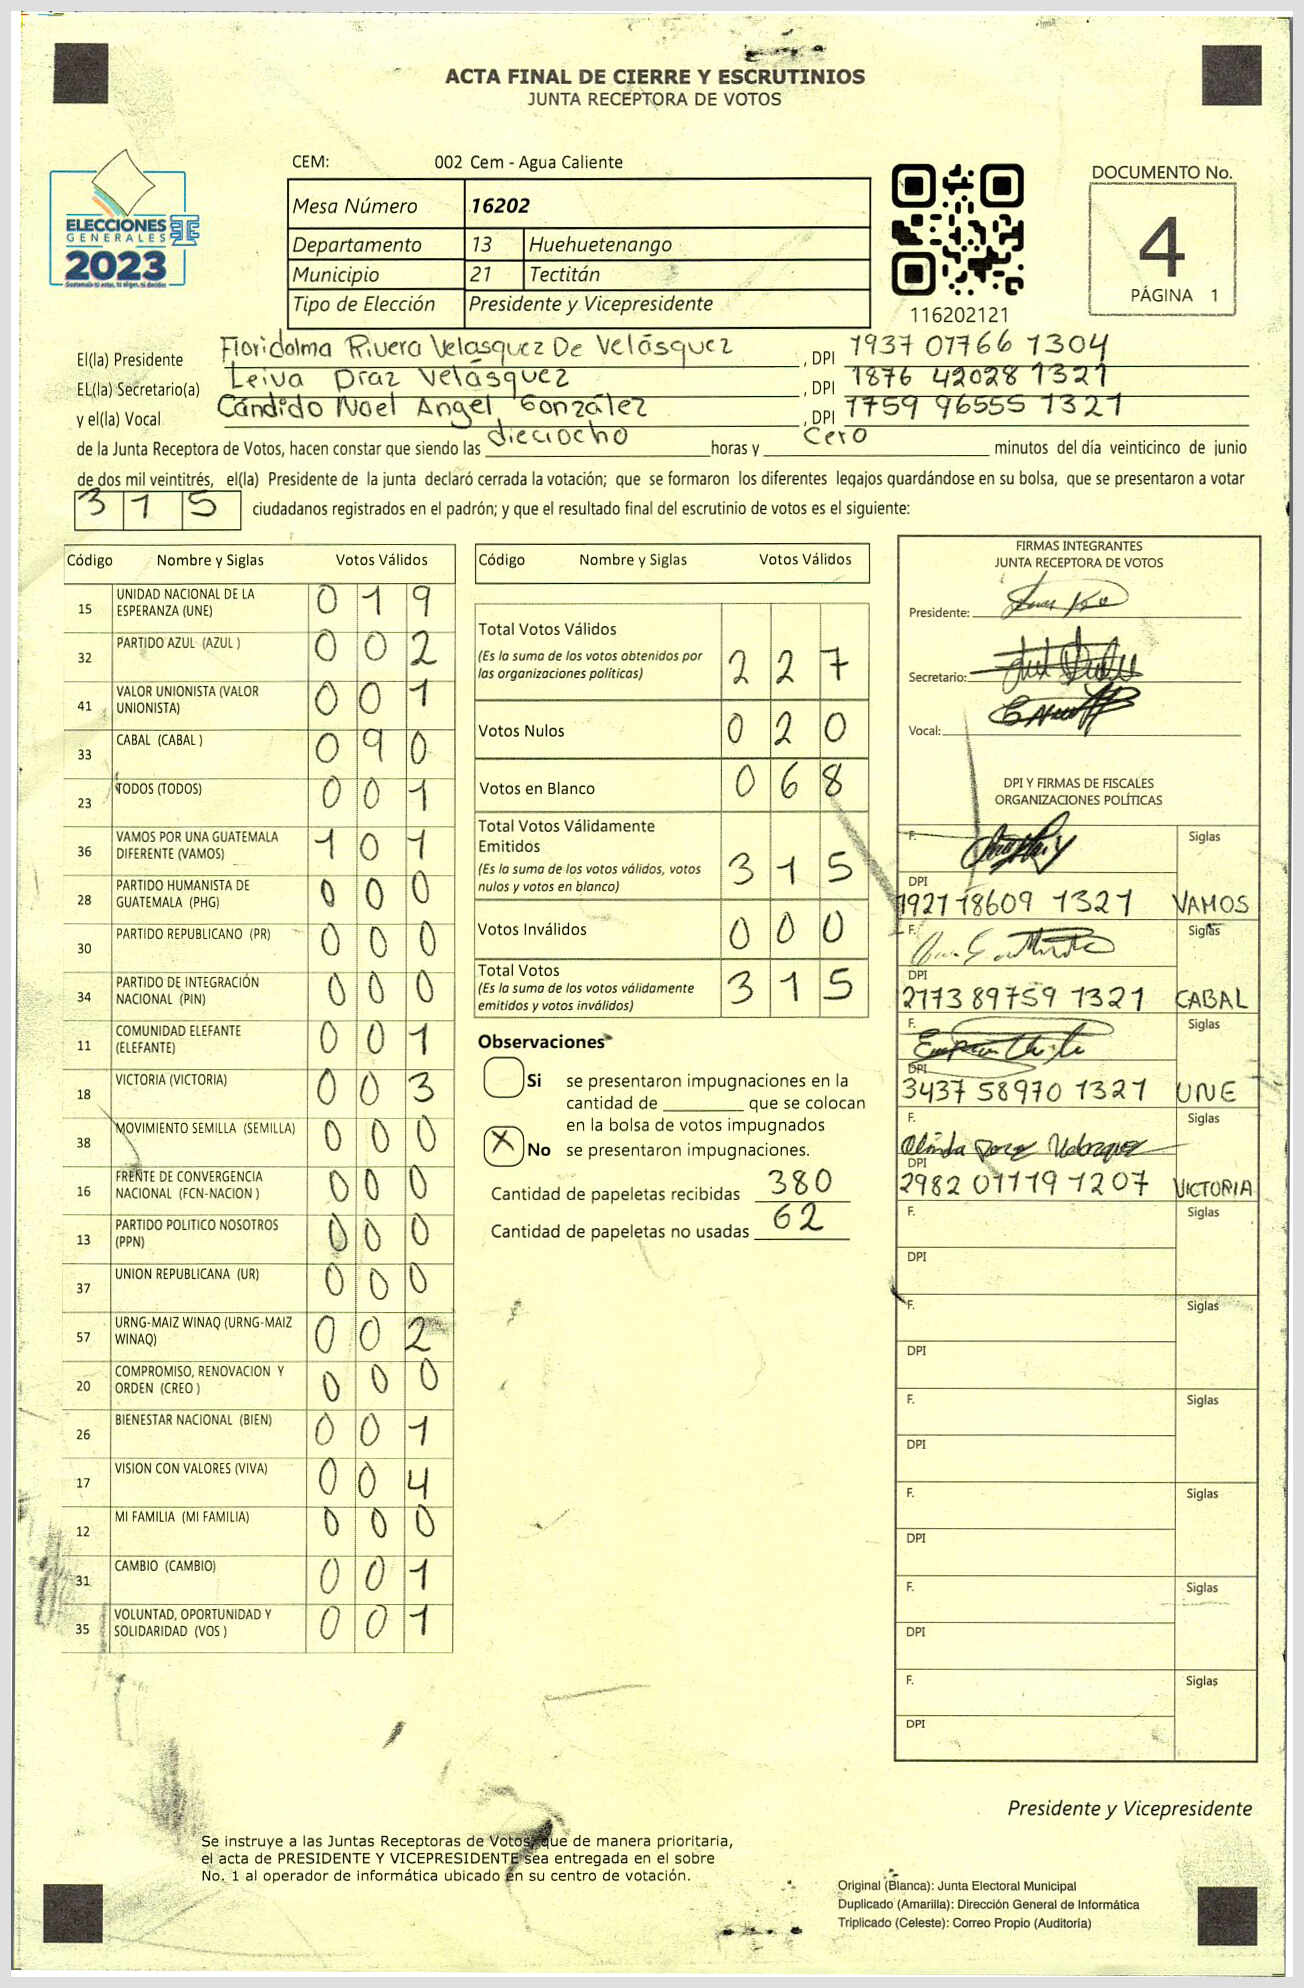 ACTA FINAL DE CIERRE Y ESCRUTINIOS
JUNTA RECEPTORA DE VOTOS
ELECCIONES
GENERALES
2023
CEM: 002 Cem - Agua Caliente
Mesa Número 16202
Departamento 13 Huehuetenango
Municipio 21 Tectitán
Tipo de Elección Presidente y Vicepresidente
116202121
DOCUMENTO No.
4
PÁGINA 1
El(la) Presidente Floridalma Rivera Velasquez De Velásquez , DPI 1937 01766 1304
EL(la) Secretario(a) Leiva Díaz Velásquez , DPI 1876 42028 1321
y el(la) Vocal Cándido Noel Angel González , DPI 1759 96555 1321
de la Junta Receptora de Votos, hacen constar que siendo las dieciocho horas y cero minutos del día veinticinco de junio
de dos mil veintitrés, el(la) Presidente de la junta declaró cerrada la votación; que se formaron los diferentes legajos guardándose en su bolsa, que se presentaron a votar
315 ciudadanos registrados en el padrón; y que el resultado final del escrutinio de votos es el siguiente:
Código Nombre y Siglas Votos Válidos
15 UNIDAD NACIONAL DE LA ESPERANZA (UNE) 0 1 9
32 PARTIDO AZUL (AZUL ) 0 0 2
41 VALOR UNIONISTA (VALOR UNIONISTA) 0 0 1
33 CABAL (CABAL ) 0 9 0
23 TODOS (TODOS) 0 0 1
36 VAMOS POR UNA GUATEMALA DIFERENTE (VAMOS) 1 0 1
28 PARTIDO HUMANISTA DE GUATEMALA (PHG) 0 0 0
30 PARTIDO REPUBLICANO (PR) 0 0 0
34 PARTIDO DE INTEGRACIÓN NACIONAL (PIN) 0 0 0
11 COMUNIDAD ELEFANTE (ELEFANTE) 0 0 1
18 VICTORIA (VICTORIA) 0 0 3
38 MOVIMIENTO SEMILLA (SEMILLA) 0 0 0
16 FRENTE DE CONVERGENCIA NACIONAL (FCN-NACION ) 0 0 0
13 PARTIDO POLITICO NOSOTROS (PPN) 0 0 0
37 UNION REPUBLICANA (UR) 0 0 0
57 URNG-MAIZ WINAQ (URNG-MAIZ WINAQ) 0 0 2
20 COMPROMISO, RENOVACION Y ORDEN (CREO ) 0 0 0
26 BIENESTAR NACIONAL (BIEN) 0 0 1
17 VISION CON VALORES (VIVA) 0 0 4
12 MI FAMILIA (MI FAMILIA) 0 0 0
31 CAMBIO (CAMBIO) 0 0 1
35 VOLUNTAD, OPORTUNIDAD Y SOLIDARIDAD (VOS ) 0 0 1
Código Nombre y Siglas Votos Válidos
Total Votos Válidos
(Es la suma de los votos obtenidos por
las organizaciones políticas) 2 2 7
Votos Nulos 0 2 0
Votos en Blanco 0 6 8
Total Votos Válidamente
Emitidos
(Es la suma de los votos válidos, votos
nulos y votos en blanco) 3 1 5
Votos Inválidos 0 0 0
Total Votos
(Es la suma de los votos válidamente
emitidos y votos inválidos) 3 1 5
Observaciones
Si se presentaron impugnaciones en la
cantidad de ________ que se colocan
en la bolsa de votos impugnados
X No se presentaron impugnaciones.
Cantidad de papeletas recibidas 380
Cantidad de papeletas no usadas 62
FIRMAS INTEGRANTES
JUNTA RECEPTORA DE VOTOS
Presidente:
Secretario:
Vocal:
DPI Y FIRMAS DE FISCALES
ORGANIZACIONES POLÍTICAS
F. Siglas
DPI
1921 18609 1321 VAMOS
F. Siglas
DPI
2173 89759 1321 CABAL
F. Siglas
DPI
3437 58970 1321 UNE
F. Siglas
DPI
2982 01119 1207 VICTORIA
F. Siglas
DPI
F. Siglas
DPI
F. Siglas
DPI
F. Siglas
DPI
F. Siglas
DPI
F. Siglas
DPI
Presidente y Vicepresidente
Se instruye a las Juntas Receptoras de Votos, que de manera prioritaria,
el acta de PRESIDENTE Y VICEPRESIDENTE sea entregada en el sobre
No. 1 al operador de informática ubicado en su centro de votación.
Original (Blanca): Junta Electoral Municipal
Duplicado (Amarilla): Dirección General de Informática
Triplicado (Celeste): Correo Propio (Auditoría)